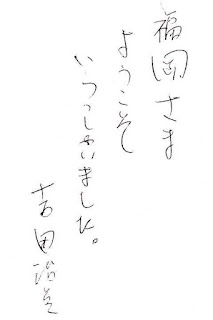 福岡さま
ようこそ
いらっしゃいました。
吉田